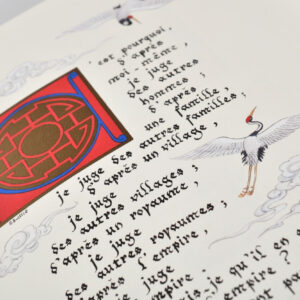 'est pourquoi,
d'après
moi-même,
je juge
des autres
hommes ;
d'après
une famille,
je juge
des autres familles ;
d'après un village,
je juge
des autres villages ;
d'après un royaume,
je juge
des autres royaumes ;
d'après l'empire,
je juge
de l'empire.
-je qu'il en
empire ?